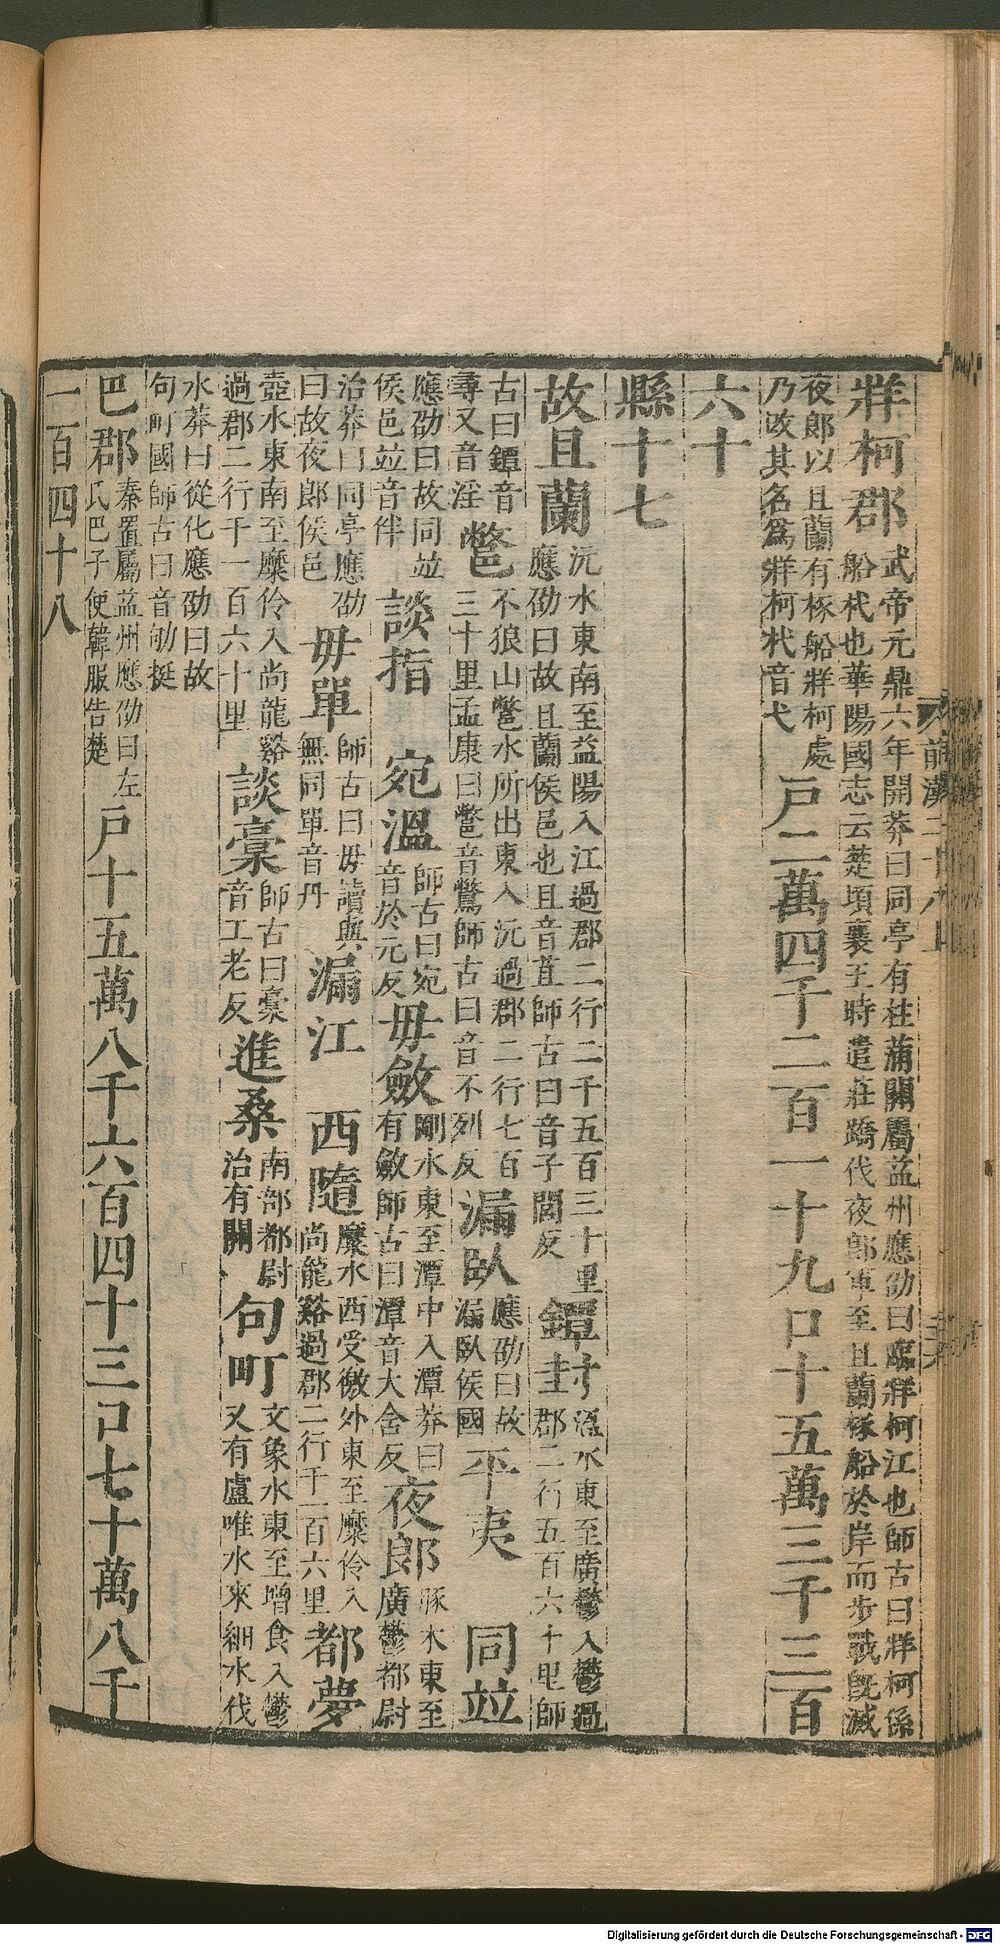 牂柯郡武帝元鼎六年開莽曰同亭有柱蒲關屬益州應劭曰臨牂柯江也師古曰牂柯係
船杙也華陽國志云楚頃襄王時遣莊蹻伐夜郎軍至且蘭椓船於岸而步戰旣滅
夜郎以且蘭有椓船牂柯處
乃改其名爲牂柯杙音弋戸二萬四千二百一十九口十五萬三千三百
六十
縣十七
故且蘭沅水東南至益陽入江過郡二行二千五百三十里
應劭曰故且蘭侯邑也且音苴師古曰音子閭反鐔封溫水東至廣鬱入鬱過
郡二行五百六十里師
古曰鐔音
尋又音淫鄨不狼山鄨水所出東入沅過郡二行七百
三十里孟康曰鄨音驚師古曰音不列反漏臥應劭曰故
漏臥侯國平夷 同竝
應劭曰故同竝
侯邑竝音伴談指 宛溫師古曰宛
音於元反毋斂剛水東至潭中入潭莽曰
有斂師古曰潭音大含反夜郎豚水東至
廣鬱都尉
治莽曰同亭應劭
曰故夜郎侯邑毋單師古曰毋讀與
無同單音丹漏江 西隨麋水西受徼外東至麋伶入
尚龍谿過郡二行千一百六里都夢
壺水東南至麋伶入尚龍谿
過郡二行千一百六十里談稾師古曰稾
音工老反進桑南部都尉
治有關句町文象水東至增食入鬱
又有盧唯水來細水伐
水莽曰從化應劭曰故
句町國師古曰音劬挺
巴郡秦置屬益州應劭曰左
氏巴子使韓服告楚戸十五萬八千六百四十三口七十萬八千
一百四十八
前漢二十八上
Digitalisierung gefördert durch die Deutsche Forschungsgemeinschaft - DFG